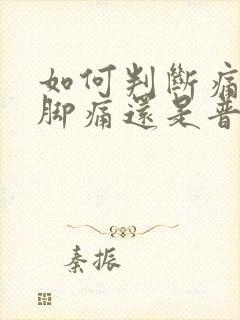 如何判斷痛
腳痛還是普
秦振